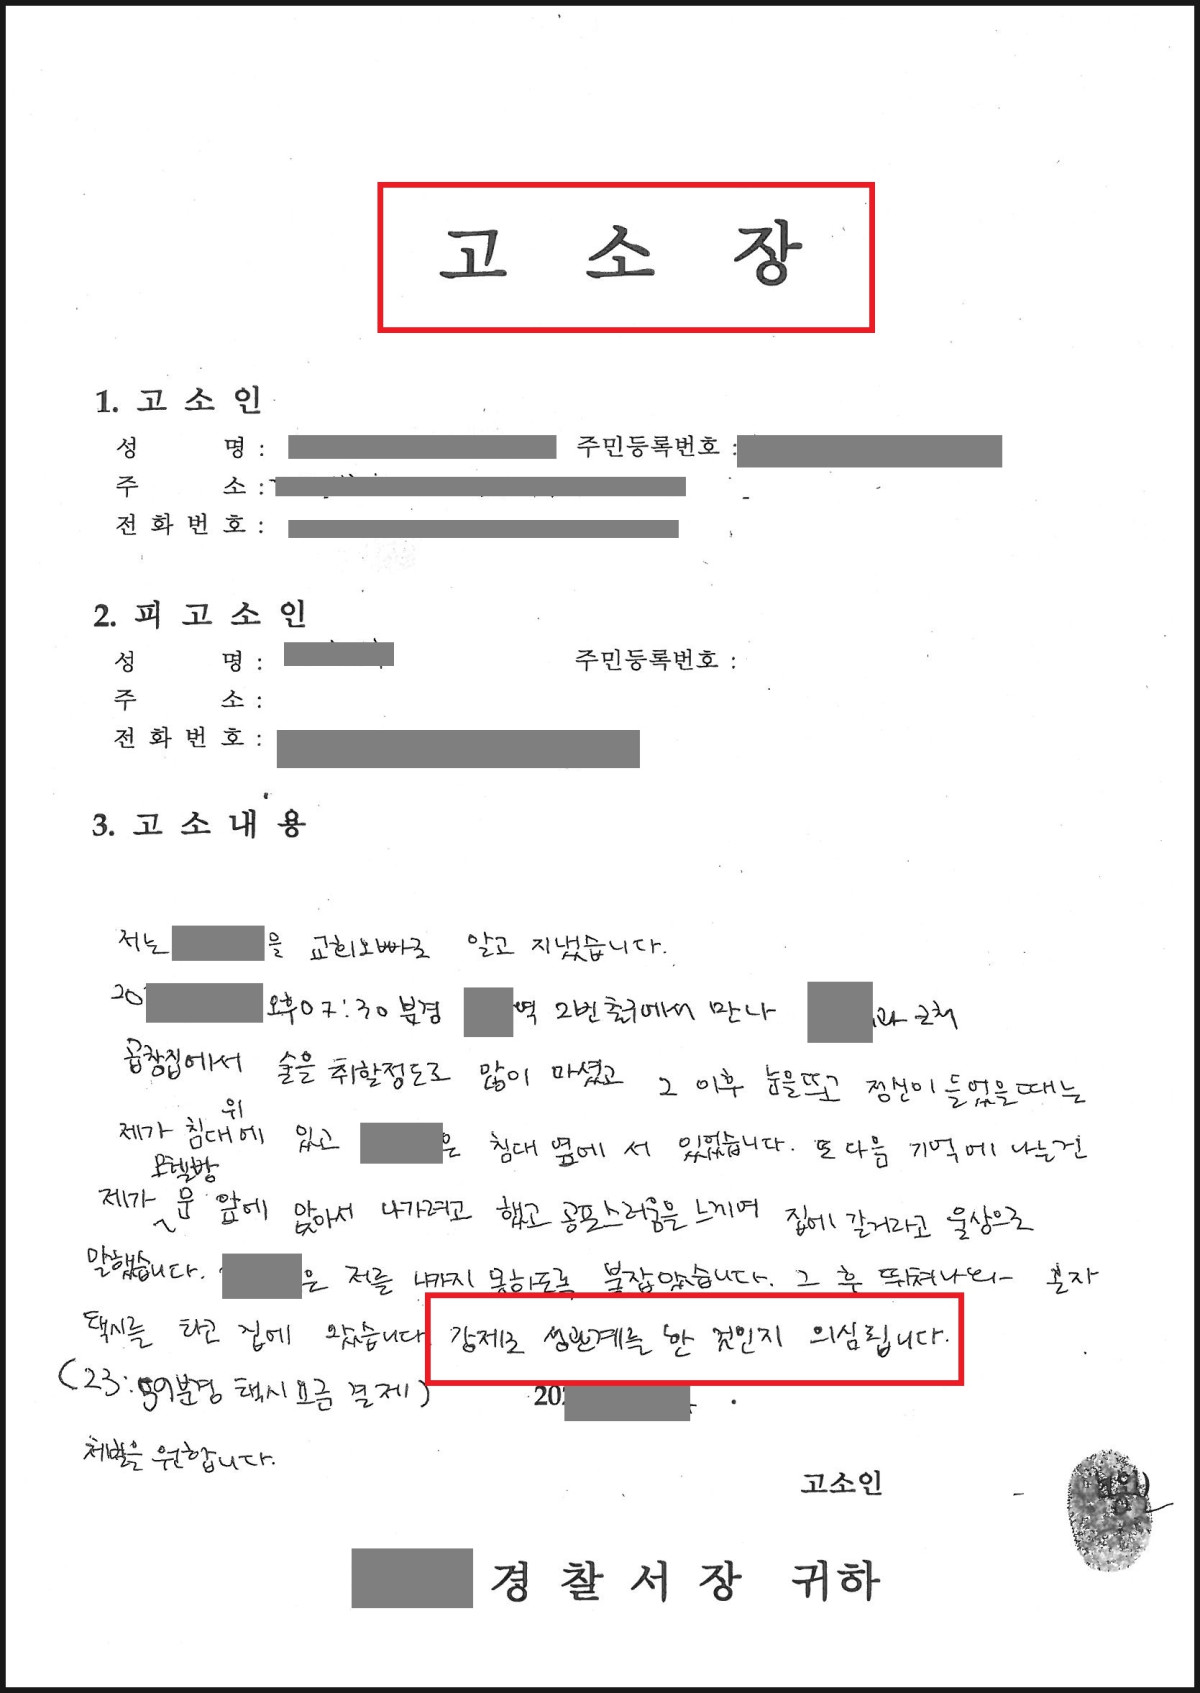 고 소 장
1. 고 소 인
성 명 : 주민등록번호 :
주 소 :
전 화 번 호 :
2. 피 고 소 인
성 명 : 주민등록번호 :
주 소 :
전 화 번 호 :
3. 고 소 내 용
저는 을 교회오빠로 알고 지냈습니다.
20 오후 07:30 분경 역 2번출구에서 만나 과 근처
곱창집에서 술을 취할정도로 많이 마셨고 그 이후 눈을뜨고 정신이 들었을때는
위
제가 침대에 있고 은 침대 옆에 서 있었습니다. 또 다음 기억에 나는건
모텔방
제가 문 앞에 앉아서 나가려고 했고 공포스러움을 느끼며 집에 갈거라고 울상으로
말했습니다. 은 저를 나가지 못하도록 붙잡았습니다. 그 후 뛰쳐나와 혼자
택시를 타고 집에 왔습니다. 강제로 성관계를 한 것인지 의심됩니다.
(23:59분경 택시요금 결제) 202 .
처벌을 원합니다.
고소인
경 찰 서 장 귀하